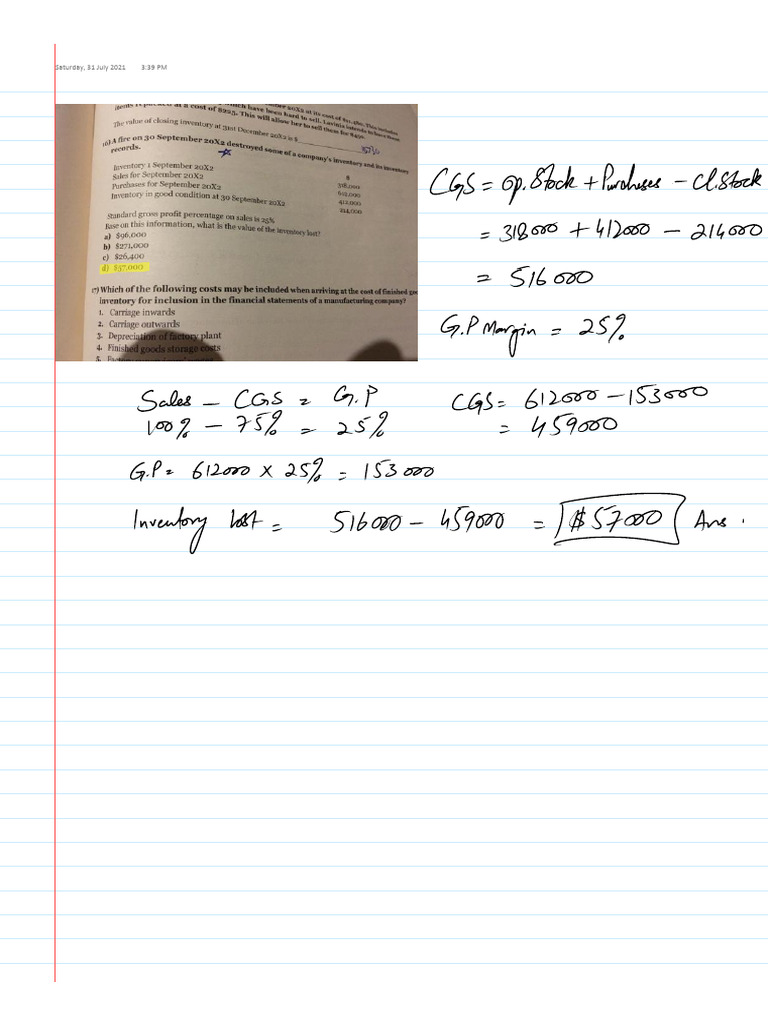 Saturday, 31 July 2021 3:39 PM
at a cost of $225. This will allow her to sell them for $490.
The value of closing inventory at 31st December 20X2 is $
16) A fire on 30 September 20X2 destroyed some of a company's inventory and its inventory
records.
$
Inventory 1 September 20X2 318,000
Sales for September 20X2 612,000
Purchases for September 20X2 412,000
Inventory in good condition at 30 September 20X2 214,000
Standard gross profit percentage on sales is 25%
Base on this information, what is the value of the inventory lost?
a) $96,000
b) $271,000
c) $26,400
d) $57,000
17) Which of the following costs may be included when arriving at the cost of finished
inventory for inclusion in the financial statements of a manufacturing company?
1. Carriage inwards
2. Carriage outwards
3. Depreciation of factory plant
4. Finished goods storage costs
5.
CGS = op.Stock + Purchases - Cl.Stock
= 318000 + 412000 - 214000
= 516000
G.P Margin = 25%
Sales - CGS = G.P
100% - 75% = 25%
CGS = 612000 - 153000
= 459000
G.P = 612000 x 25% = 153000
Inventory lost = 516000 - 459000 = $57000 Ans.